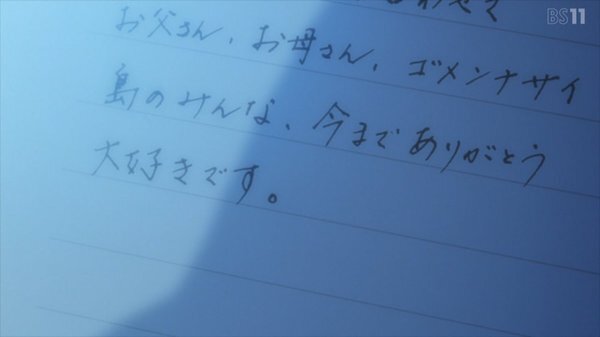 BS11
お父さん、お母さん、ゴメンナサイ
島のみんな、今までありがとう
大好きです。